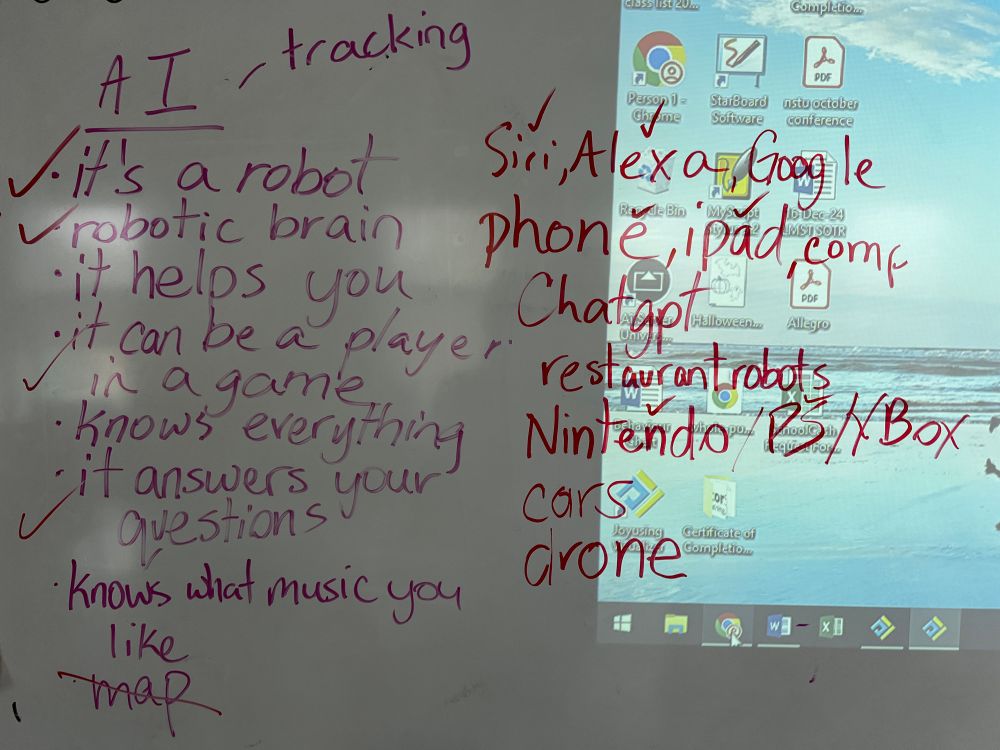 AI - tracking
• it's a robot
• robotic brain
• it helps you
• it can be a player
in a game
• knows everything
• it answers your
questions
• knows what music you
like
map
Siri, Alexa, Google
phone, ipad, comp
Chatgpt
restaurant robots
Nintendo / PS / XBox
cars
drone
class list 20...
Completio...
Person 1 -
Chrome
StarBoard
Software
PDF
nstu october
conference
Recycle Bin
16-Dec-24
LMST SOTR
Halloween...
PDF
Allegro
Joyusing
Certificate of
Completio...